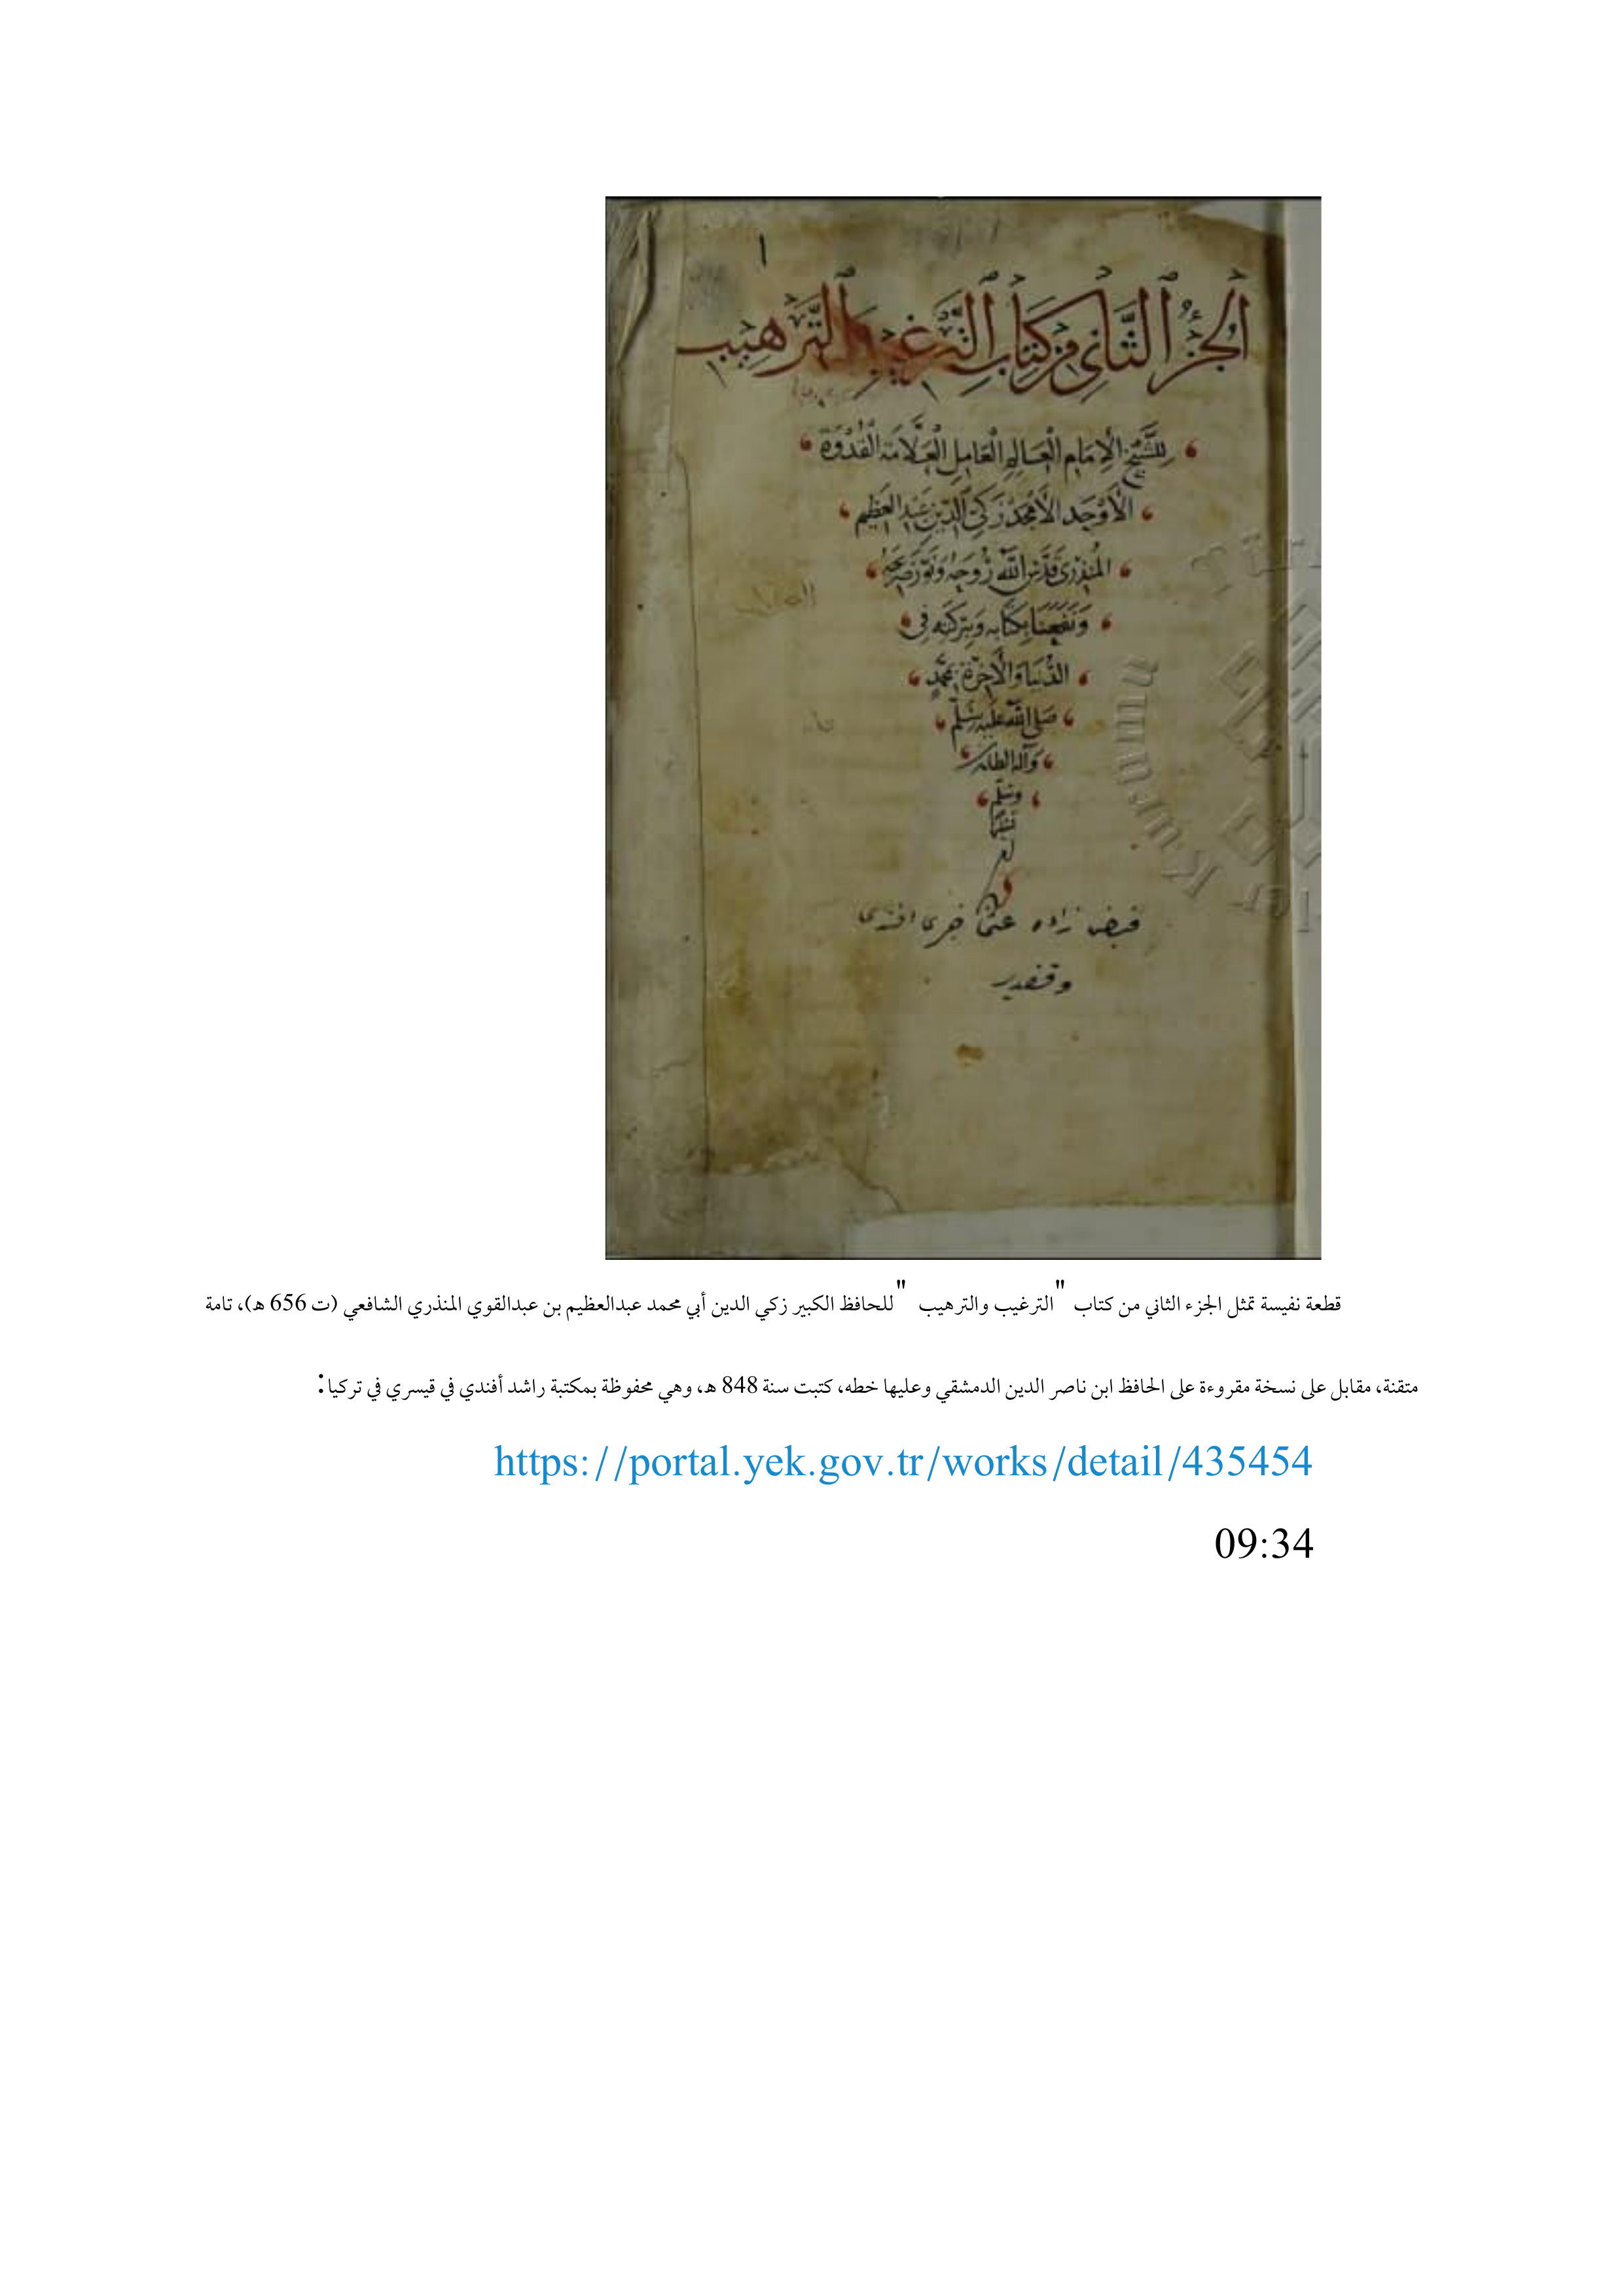 ١
الجُزءُ الثَّاني مِن كتَاب التَّرغيب والتَّرهِيب
لِلشَّيخ الإِمَام العَالِم العَامِل العَلَّامَة القُدْوَة
الأَوْحَد الأَمْجَد زَكيّ الدّين عَبْد العَظِيم
المُنذِري قَدَّسَ اللَّه رُوحَه وَنَوَّرَ ضَرِيحَه
وَنَفَعَنَا بِكتَابِه وَبَرَكَتِه فِي
الدُّنيَا وَالآخِرَة بِمُحَمَّدٍ
صَلَّى اللَّه عَلَيْه وَسَلَّم
وَآلِه
وسَلّم
فيض زاده عثمان خيرى افندى
وقفيدر
قطعة نفيسة تمثل الجزء الثاني من كتاب "الترغيب والترهيب" للحافظ الكبير زكي الدين أبي محمد عبدالعظيم بن عبدالقوي المنذري الشافعي (ت 656 ه)، تامة
متقنة، مقابل على نسخة مقروءة على الحافظ ابن ناصر الدين الدمشقي وعليها خطه، كتبت سنة 848 ه، وهي محفوظة بمكتبة راشد أفندي في قيسري في تركيا:
https://portal.yek.gov.tr/works/detail/435454
09:34